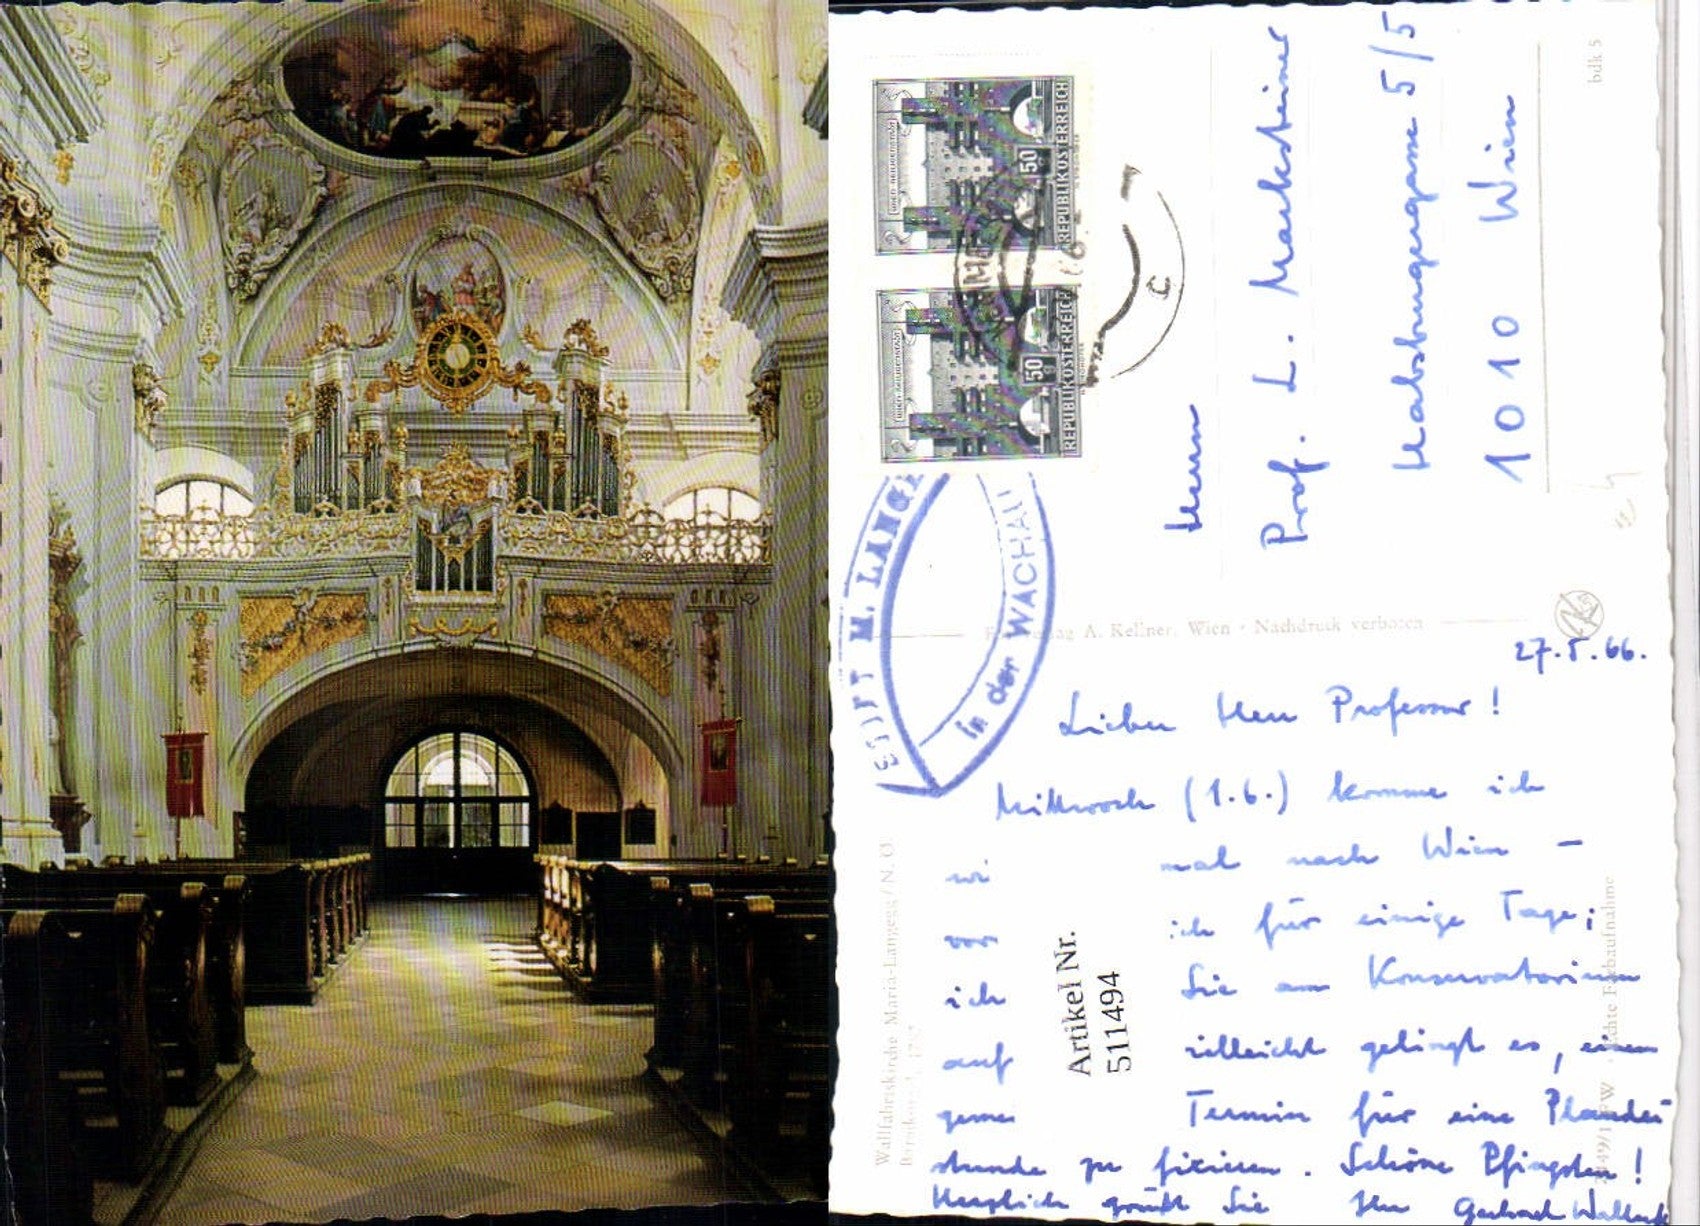 WIEN REICHENSTADT
50
REPUBLIK ÖSTERREICH
50
REPUBLIK ÖSTERREICH
STIFT M. LANG
in der WACHAU
bdk 5
Herrn
Prof. L. Marksteiner
Habsburgergasse 5/5
1010 Wien
A. Kellner, Wien · Nachdruck verboten
27.5.66.
Lieber Herr Professor!
Mittwoch (1.6.) komme ich
wi mal nach Wien –
vor ich für einige Tage;
ich Sie am Konservatorium
auf vielleicht gelingt es, einen
gernes Termin für eine Plauder-
stunde zu fixieren. Schöne Pfingsten!
Herzlich grüßt Sie Ihr
Artikel Nr.
511494
Wallfahrtskirche Maria-Langegg / N. Ö.
Farbaufnahme